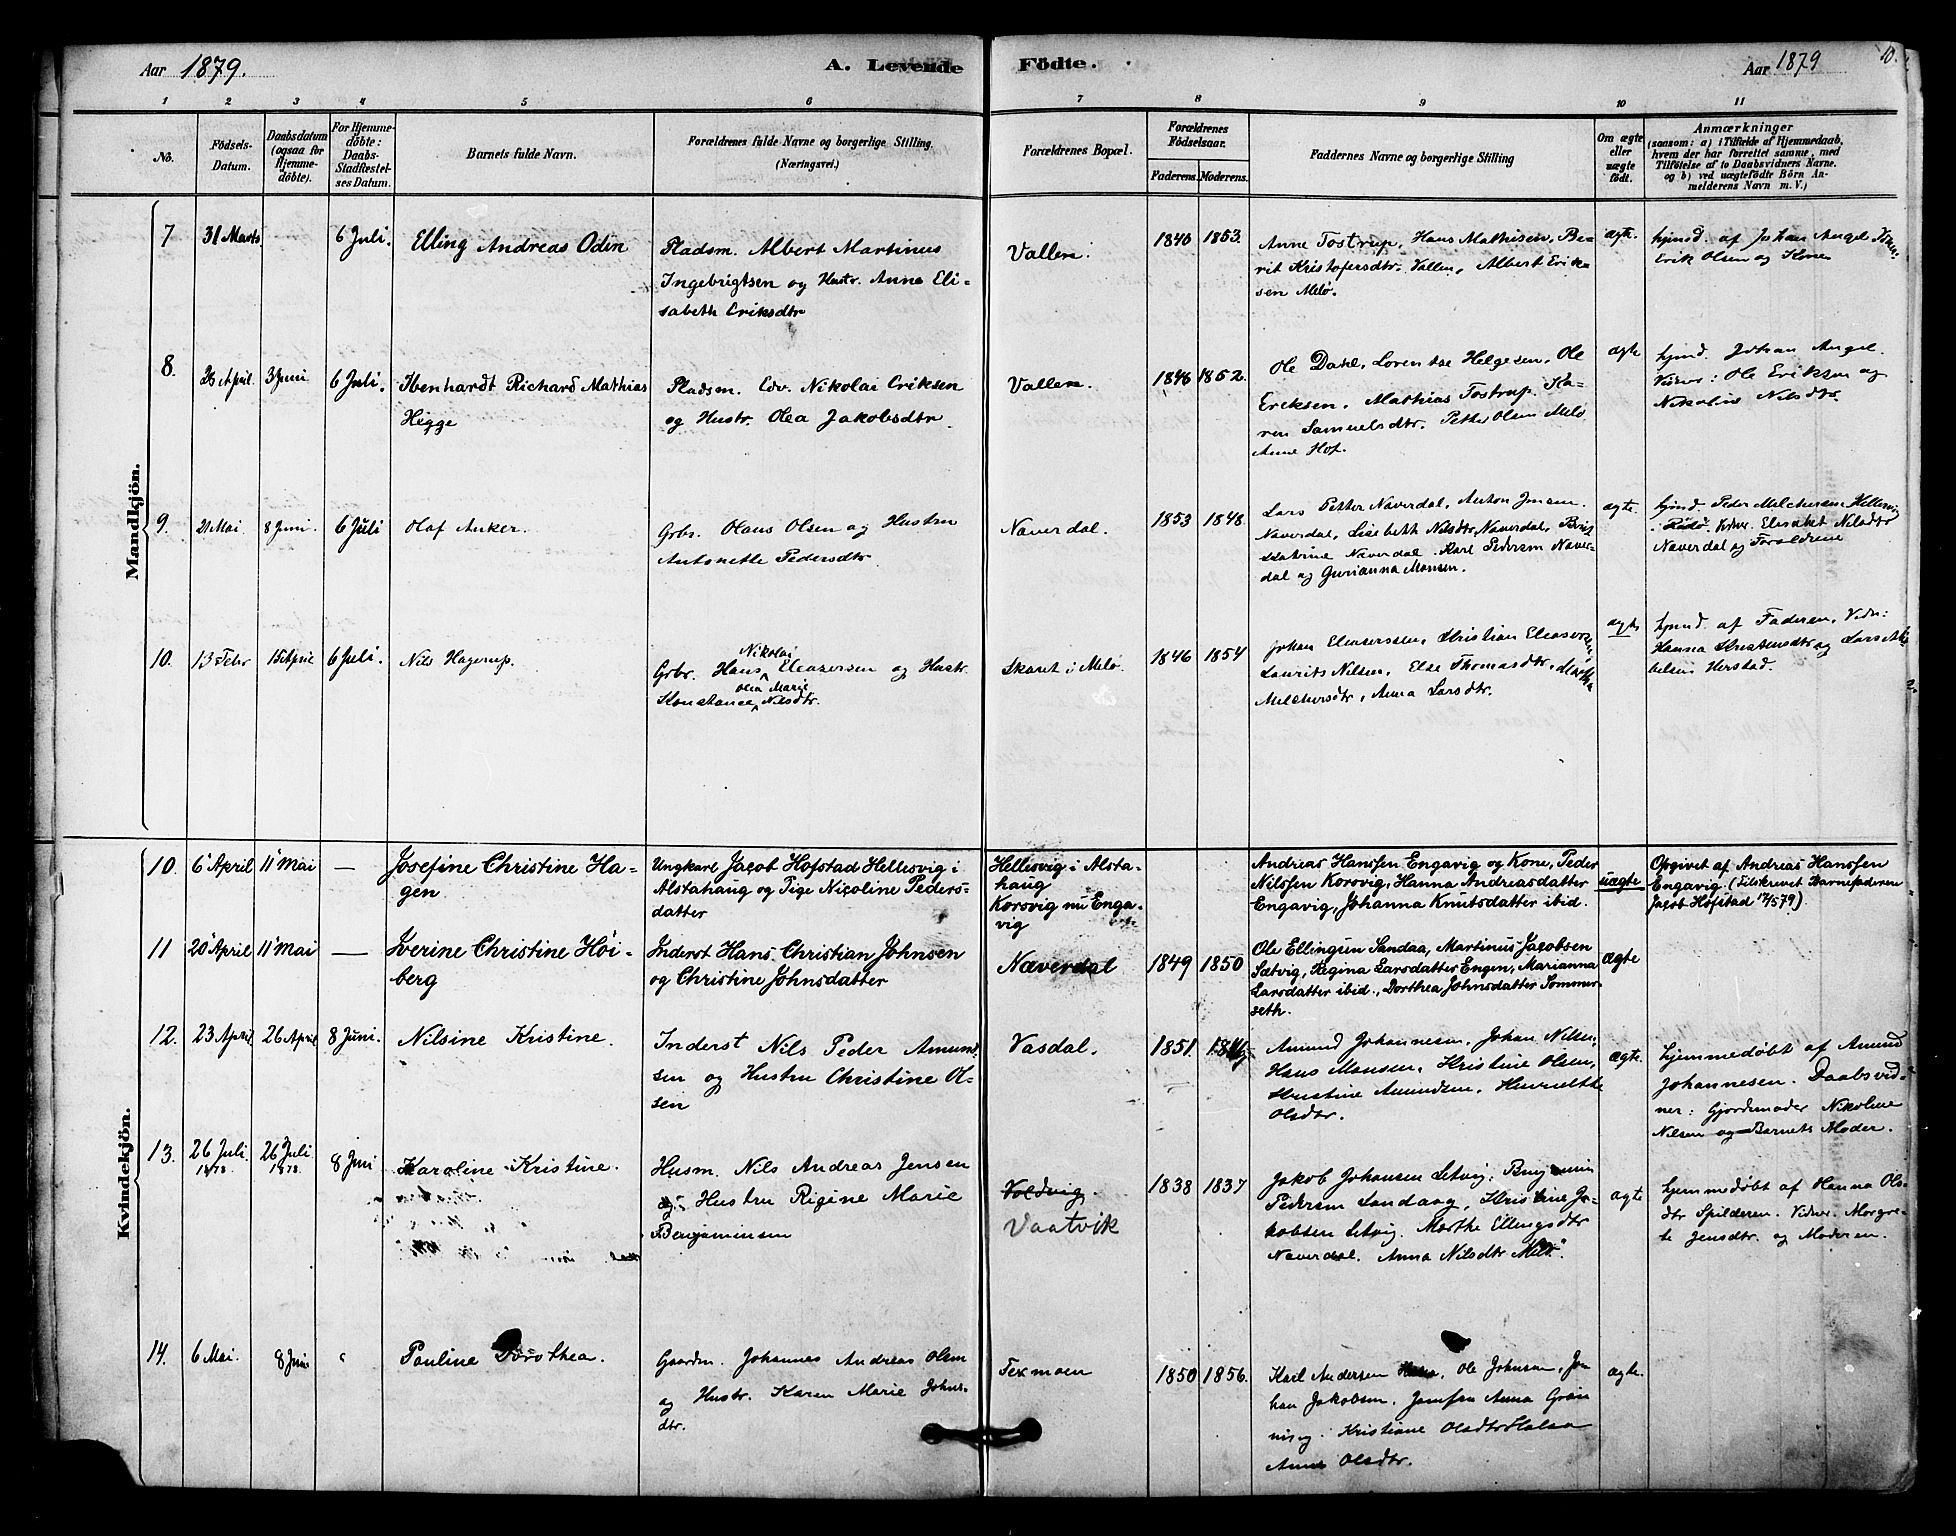 Aar 1879.
A. Levende Födte.
Aar 1879
10.
1 2 3 4 5 6 7 8 9 10 11
No.
Födsels-
Datum.
Daabsdatum
(ogsaa for
Hjemme-
döbte).
For Hjemme-
döbte:
Daabs-
Stadfæstel-
ses Datum.
Barnets fulde Navn.
Forældrenes fulde Navne og borgerlige Stilling
(Næringsvei.)
Forældrenes Bopæl.
Forældrenes
Födselsaar.
Faderens. Moderens.
Faddernes Navne og borgerlige Stilling
Om ægte
eller
uægte
födt.
Anmærkninger
(saasom: a) i Tilfælde af Hjemmedaab,
hvem der har forrettet samme, med
Tilföielse af to Daabsvidners Navne.
og b) ved uægtefödte Börn An-
melderens Navn m. V.)
Mandkjön.
7
31 Marts
6 Juli.
Elling Andreas Odin
Pladsm. Albert Martinus
Ingebrigtsen og Hustr. Anna Eli-
sabeth Eriksdtr
Vallen.
1840 1853.
Anne Tostrup, Hans Mathisen, Be-
rit Kristofersdtr. Vallen, Albert Erik-
sen Melö.
ægte.
hjmd. af Johan Angel
Erik Olsen og Kone
8.
26 April. 3 Juni 6 Juli.
Ibenhardt Richard Mathias
Higge
Pladsm. Edv. Nikolai Eriksen
og Hustr. Olea Jakobsdtr.
Vallen.
1846 1852.
Ole Dahl, Lorentse Helgesen, Ole
Eriksen. Mathias Tostrup. Ka-
ren Samuelsdtr. Petter Olsen Melö
Anne Hof.
ægte
hjmd. Johan Angel.
Vidner: Ole Eriksen og
Nikoline Nilsdtr.
9.
21 Mai 8 Juni. 6 Juli
Olaf Anker.
Grbr. Olaus Olsen og Hustru
Antonette Pedersdtr.
Naverdal.
1853 1848.
Lars Petter Naverdal, Anton Jensen
Naverdal, Lisebeth Nilsdtr Naverdal, Berit
Katrine Naverdal. Karl Pedersen Naver-
dal og Gurianna Monsen.
ægte.
hjmd. Peder Melchersen Hellesvig
Rödö Vidner. Elisabet Nilsdtr
Naverdal og Forældrene
10.
13 Febr 15 April 6 Juli.
Nils Hagerup.
Nikolai
Grbr. Hans Eleasersen og Hustr.
Olea Marie
Konstance Nilsdtr.
Skaret i Melö
1846 1854
Johan Eleasersen, Kristian Eleasersen
Laurits Nilsen, Else Thomasdtr, Martha
Melchersdtr, Anna Larsdtr.
ægte
hjmd. af Faderen, Vidn:
Hanna Kristensdtr og Lars
Herstad.
Kvindekjön.
10. 6 April 11 Mai —
Josefine Christine Ha-
gen.
Ungkarl Jacob Hofstad Hellesvig i
Alstahaug og Pige Nicoline Peders-
datter
Hellesvig i Alsta-
haug
Korsvig nu Enga-
vig
Andreas Hanssen Engavig og Kone, Peder
Nilssen Korsvig, Hanna Andreasdatter
Engavig, Johanna Knutsdatter ibid.
uægte
Opgivet af Andreas Hanssen
Engavig. (Tilskrevet Barnefaderen
Jacob Hofstad
11 20 April 11 Mai —
Iverine Christine Höi-
berg
Inderst Hans Christian Johnsen
og Christine Johnsdatter
Næverdal
1849 1850
Ole Ellingsen Sandaa, Martinus Jacobsen
Sætvig, Regina Larsdatter Engen, Marianna
Larsdatter ibid., Dorthea Johnsdatter Sommer-
seth.
ægte
12. 23 April 26 April 8 Juni.
Nilsine Kristine.
Inderst Nils Peder Amund-
sen og Hustru Christine Ol-
sen
Vasdal.
1851.
Amund Johannesen, Johan Nilsen,
Hans Monsen, Kristine Olsen,
Kristine Amundsen, Henriette
Olsdtr.
ægte.
hjemmedøbt af Amund
Johannesen. Daabsvid-
ner: Gjordemoder Nikoline
Nilsen og Barnets Moder.
13. 26 Juli 1878. 26 Juli 1878. 8 Juni
Karoline Kristine.
Husm. Nils Andreas Jensen
og Hustru Rigine Marie
Benjaminsen
Voldvig.
Vaatvik
1838 1837
Jakob Johansen Setvig, Benjamin
Pedersen Sandaag, Kristine Ja-
kobsen Setvig. Marthe Ellingsdtr
Naverdal. Anna Nilsdtr Melö.
ægte
hjemmedøbt af Hanna Ols-
dtr Spilderen. Vidner. Morgre-
te Jensdtr. og Moderen.
14. 6 Mai. 8 Juni
Pauline Dorothea.
Gaardm. Johannes Andreas Olsen
og Hustr. Karen Marie Johns-
dtr.
Texmoen
1850 1856.
Karl Andersen Ole Johnsen, Jo-
han Jakobsen, Jomfru Anna Grøn-
ning. Kristiane Olsdtr Halsa
Anne Olsdtr.
ægte.